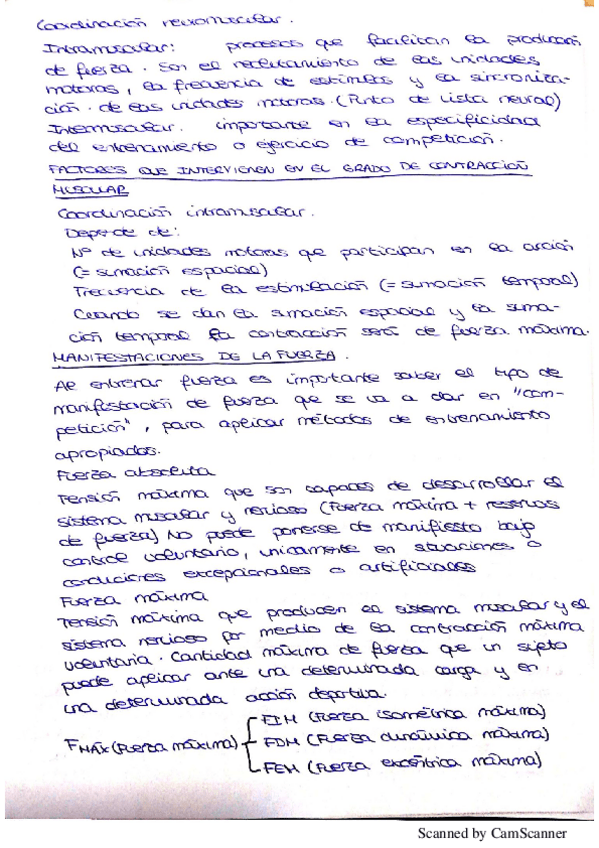 Coordinación neuromuscular.
Intramuscular: procesos que facilitan la producción
de fuerza. Son el reclutamiento de las unidades
motoras, la frecuencia de estímulos y la sincroniza-
ción de las unidades motoras. (Punto de vista neural)
Intermuscular. importante en la especificidad
del entrenamiento o ejercicio de competición.
FACTORES QUE INTERVIENEN EN EL GRADO DE CONTRACCIÓN
MUSCULAR
Coordinación intramuscular.
Depende de:
Nº de unidades motoras que participan en la acción
(= sumación espacial)
Frecuencia de la estimulación (= sumación temporal)
Cuando se dan la sumación espacial y la suma-
ción temporal la contracción será de fuerza máxima.
MANIFESTACIONES DE LA FUERZA.
Al entrenar fuerza es importante saber el tipo de
manifestación de fuerza que se va a dar en "com-
petición", para aplicar métodos de entrenamiento
apropiados.
Fuerza absoluta
Tensión máxima que son capaces de desarrollar el
sistema muscular y nervioso (Fuerza máxima + reservas
de fuerza) No puede ponerse de manifiesto bajo
control voluntario, unicamente en situaciones o
condiciones excepcionales o artificiales
Fuerza máxima
Tensión máxima que producen el sistema muscular y el
sistema nervioso por medio de la contracción máxima
voluntaria. Cantidad máxima de fuerza que un sujeto
puede aplicar ante una determinada carga y en
una determinada acción deportiva.
FIM (Fuerza isométrica máxima)
FMÁX (Fuerza máxima) FDM (Fuerza dinámica máxima)
FEM (Fuerza excéntrica máxima)
Scanned by CamScanner